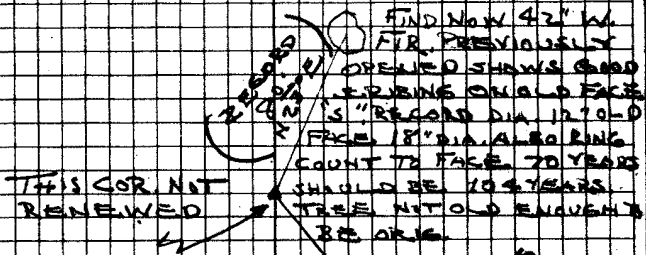 FIND NOW 42" W.
FIR. PREVIOUSLY
OPENED SHOWS GOOD
SCRIBING ON OLD FACE
"S" RECORD DIA. 12" OLD
FACE 18" DIA. ALSO RING
COUNT TO FACE 70 YEARS
SHOULD BE 104 YEARS
TREE NOT OLD ENOUGH TO
BE ORIG.
RECORD
THIS COR. NOT
RENEWED